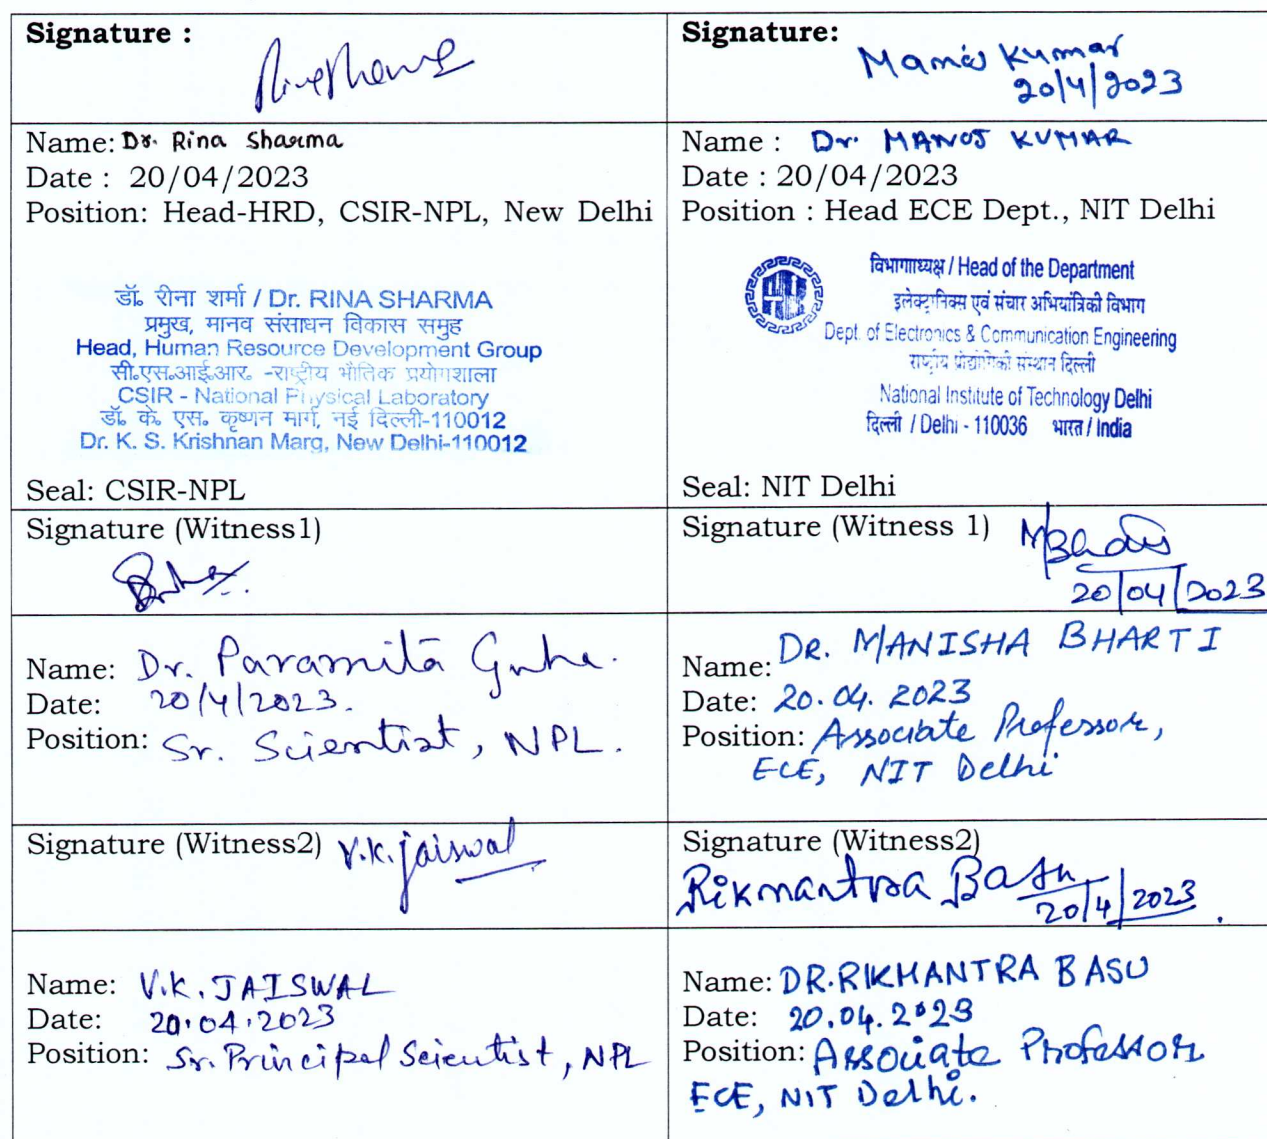 Signature :
Name: Dr. Rina Sharma
Date : 20/04/2023
Position: Head-HRD, CSIR-NPL, New Delhi
डॉ. रीना शर्मा / Dr. RINA SHARMA
प्रमुख, मानव संसाधन विकास समुह
Head, Human Resource Development Group
सी.एस.आई.आर. -राष्ट्रीय भौतिक प्रयोगशाला
CSIR - National Physical Laboratory
डॉ. के. एस. कृष्णन मार्ग, नई दिल्ली-110012
Dr. K. S. Krishnan Marg, New Delhi-110012
Seal: CSIR-NPL
Signature:
Kumar
20/4/2023
Name : Dr. MANOJ KUMAR
Date : 20/04/2023
Position : Head ECE Dept., NIT Delhi
विभागाध्यक्ष / Head of the Department
इलेक्ट्रानिक्स एवं संचार अभियांत्रिकी विभाग
Dept. of Electronics & Communication Engineering
राष्ट्रीय प्रौद्योगिकी संस्थान दिल्ली
National Institute of Technology Delhi
दिल्ली / Delhi - 110036 भारत / India
Seal: NIT Delhi
Signature (Witness1)
Signature (Witness 1)
20/04/2023
Name: Dr. Paramita Guha.
Date: 20/4/2023.
Position: Sr. Scientist, NPL.
Name: DR. MANISHA BHARTI
Date: 20.04.2023
Position: Associate Professor,
ECE, NIT Delhi
Signature (Witness2) V.K. jaiswal
Signature (Witness2)
Rikmantra Basu
20/4/2023.
Name: V.K. JAISWAL
Date: 20.04.2023
Position: Sr. Principal Scientist, NPL
Name: DR. RIKMANTRA BASU
Date: 20.04.2023
Position: Associate Professor
ECE, NIT Delhi.